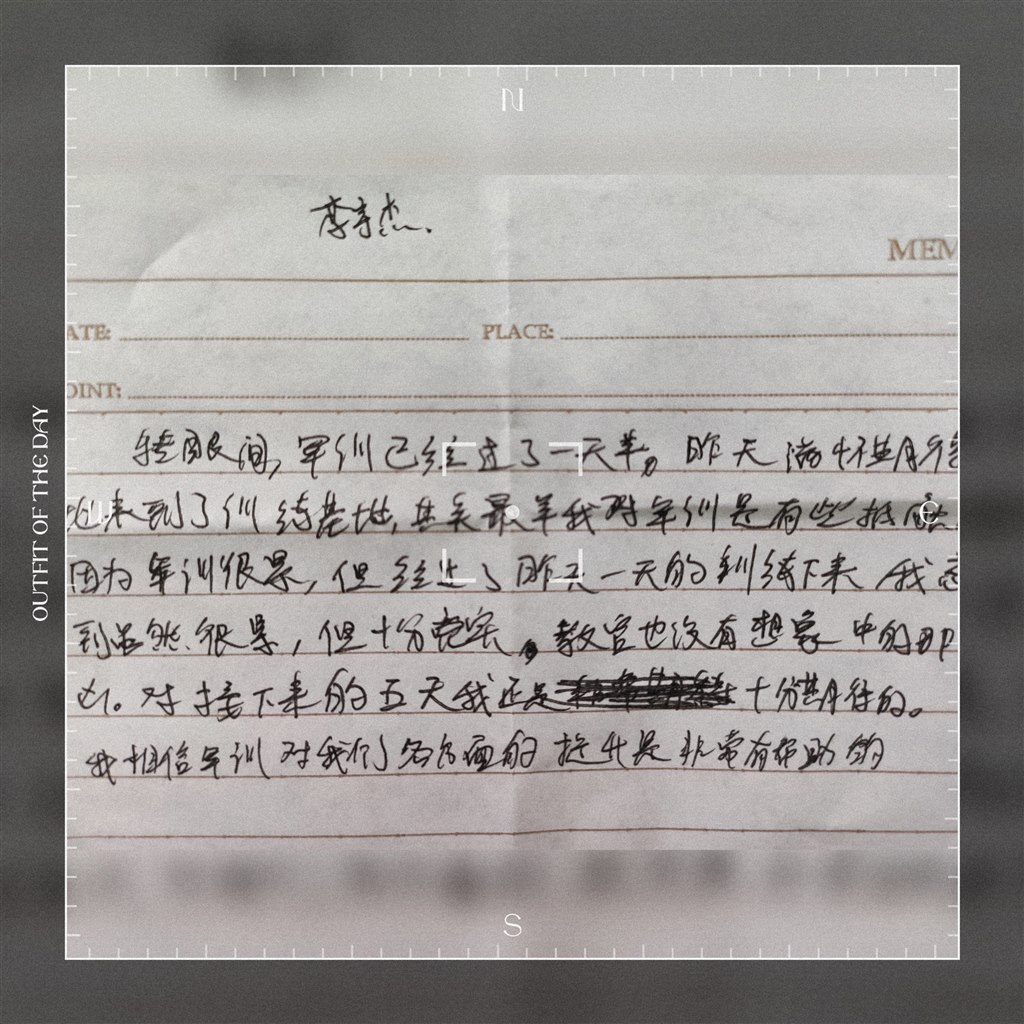 N
李宇杰.
MEM
ATE: PLACE:
OINT:
转眼间,军训已经过了一天半。昨天满怀期待
地来到了训练基地,其实最羊我对军训是有些抵触
因为军训很累,但经过了昨天一天的训练下来 我感
到虽然很累,但十分充实,教官也没有想象中的那
凶。对接下来的五天我还是十分期待的。
我相信军训对我们各方面的提升是非常有帮助的
S
OUTFIT OF THE DAY